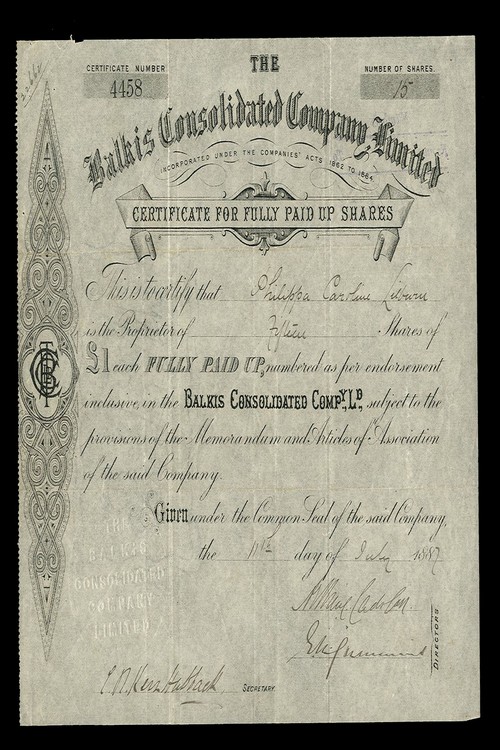 THE
CERTIFICATE NUMBER
4458
NUMBER OF SHARES.
15
Balkis Consolidated Company, Limited
INCORPORATED UNDER THE COMPANIES' ACTS 1862 TO 1864
CERTIFICATE FOR FULLY PAID UP SHARES
This is to certify that Philippa Caroline
is the Proprietor of Fifteen Shares of
£1 each FULLY PAID UP, numbered as per endorsement
inclusive, in the BALKIS CONSOLIDATED COMPY, LD, subject to the
provisions of the Memorandum and Articles of Association
of the said Company.
Given under the Common Seal of the said Company,
the 11th day of July 1887
THE
BALKIS
CONSOLIDATED
COMPANY
LIMITED
DIRECTORS
SECRETARY